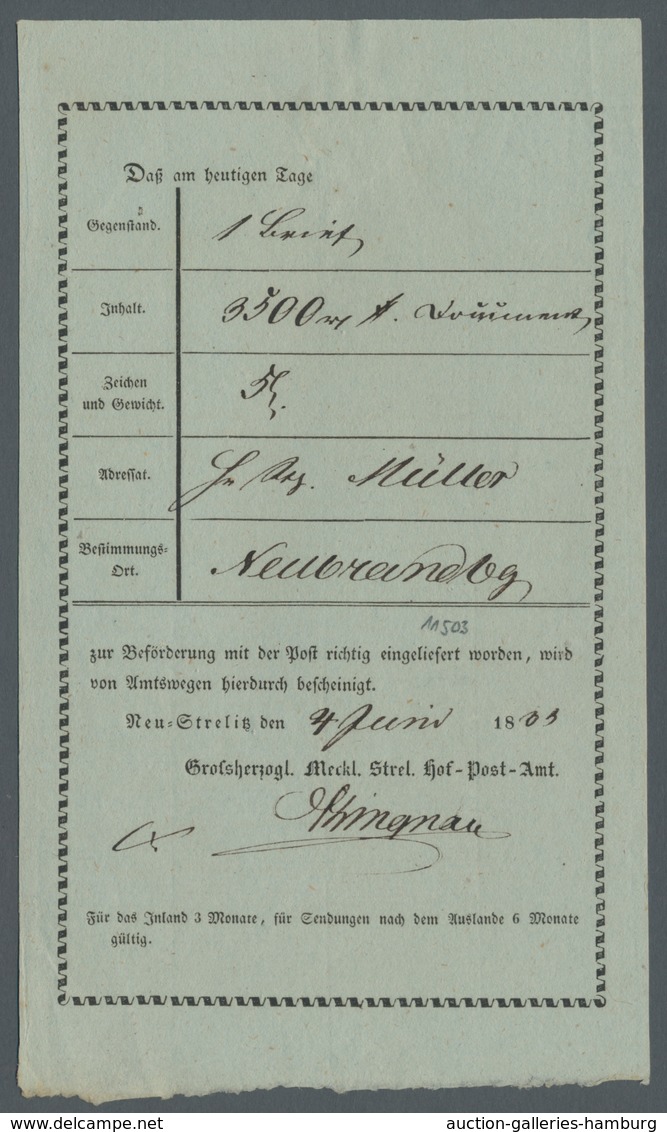 Daß am heutigen Tage
Gegenstand. 1 Brief
Inhalt. 3500 Document
Zeichen
und Gewicht.
Adressat. Müller
Bestimmungs-
Ort. Neubrandbg
11503
zur Beförderung mit der Post richtig eingeliefert worden, wird
von Amtswegen hierdurch bescheinigt.
Neu-Strelitz den 4 Juni 18
Grosherzogl. Meckl. Strel. Hof-Post-Amt.
Für das Inland 3 Monate, für Sendungen nach dem Auslande 6 Monate
gültig.
www.delcampe.net
auction-galleries-hamburg